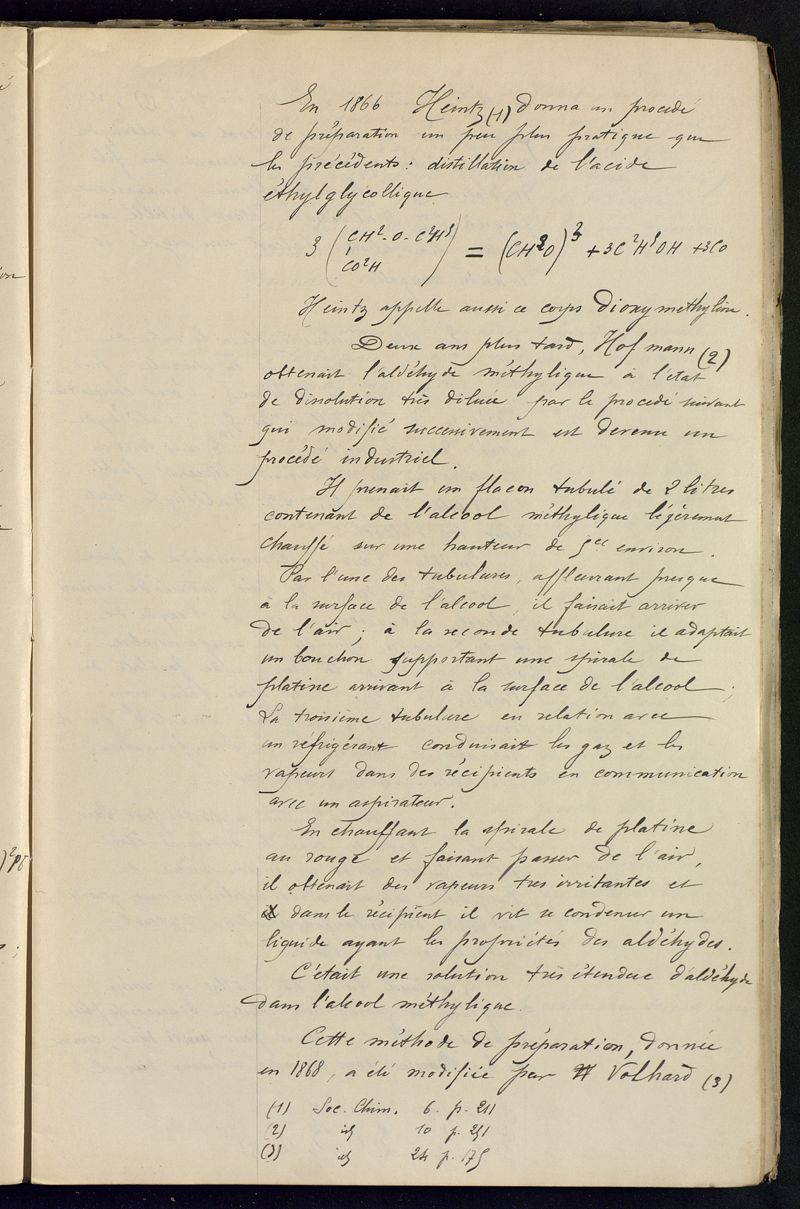 En 1866 Heintz (1) donna un procédé
de préparation un peu plus pratique que
les précédents : distillation de l'acide
éthylglycollique
3 ( CH² - O - C²H⁵ ) = (CH²O)³ + 3C²H⁵OH + 3CO
CO²H
Heintz appelle aussi ce corps Dioxymethylène.
Deux ans plus tard, Hofmann (2)
obtenait l'aldéhyde méthylique à l'état
de dissolution très diluée par le procédé suivant
qui modifié successivement est devenu un
procédé industriel.
Il prenait un flacon tubulé de 2 litres
contenant de l'alcool méthylique légèrement
chauffé sur une hauteur de 5cc environ.
Par l'une des tubulures, affleurant presque
à la surface de l'alcool, il faisait arriver
de l'air ; à la seconde tubulure il adaptait
un bouchon supportant une spirale de
platine arrivant à la surface de l'alcool ;
La troisième tubulure en relation avec
un réfrigérant conduisait les gaz et les
vapeurs dans des récipients en communication
avec un aspirateur.
En chauffant la spirale de platine
au rouge et faisant passer de l'air,
il obtenait des vapeurs très irritantes et
dans le récipient il vit se condenser un
liquide ayant les propriétés des aldéhydes.
C'était une solution très étendue d'aldéhyde
dans l'alcool méthylique.
Cette méthode de préparation, donnée
en 1868, a été modifiée par Volhard (3)
(1) Soc. Chim. 6. p. 211
(2) id 10 p. 251
(3) id 24 p. 175